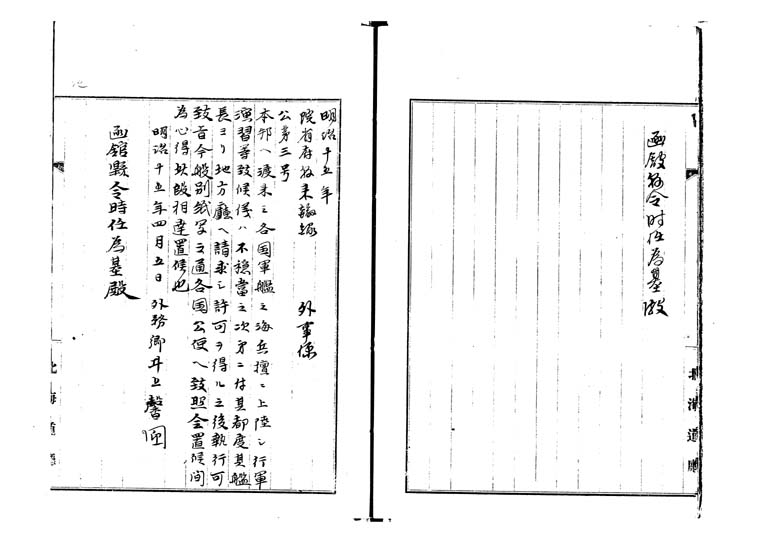 函館県令時任為基殿
北海道庁
明治十五年
院省府県来翰録　外事係
公第三号
本邦ヘ渡来之各国軍艦之海兵擅ニ上陸シ行軍
演習等致候儀ハ不穏当之次第ニ付其都度其艦
長ヨリ地方廳ヘ請求シ許可ヲ得ル之後執行可
致旨今般別紙写之通各国公使ヘ致照会置候間
為心得此段相達置候也
明治十五年四月五日　外務卿井上馨
函館縣令時任為基殿
北海道